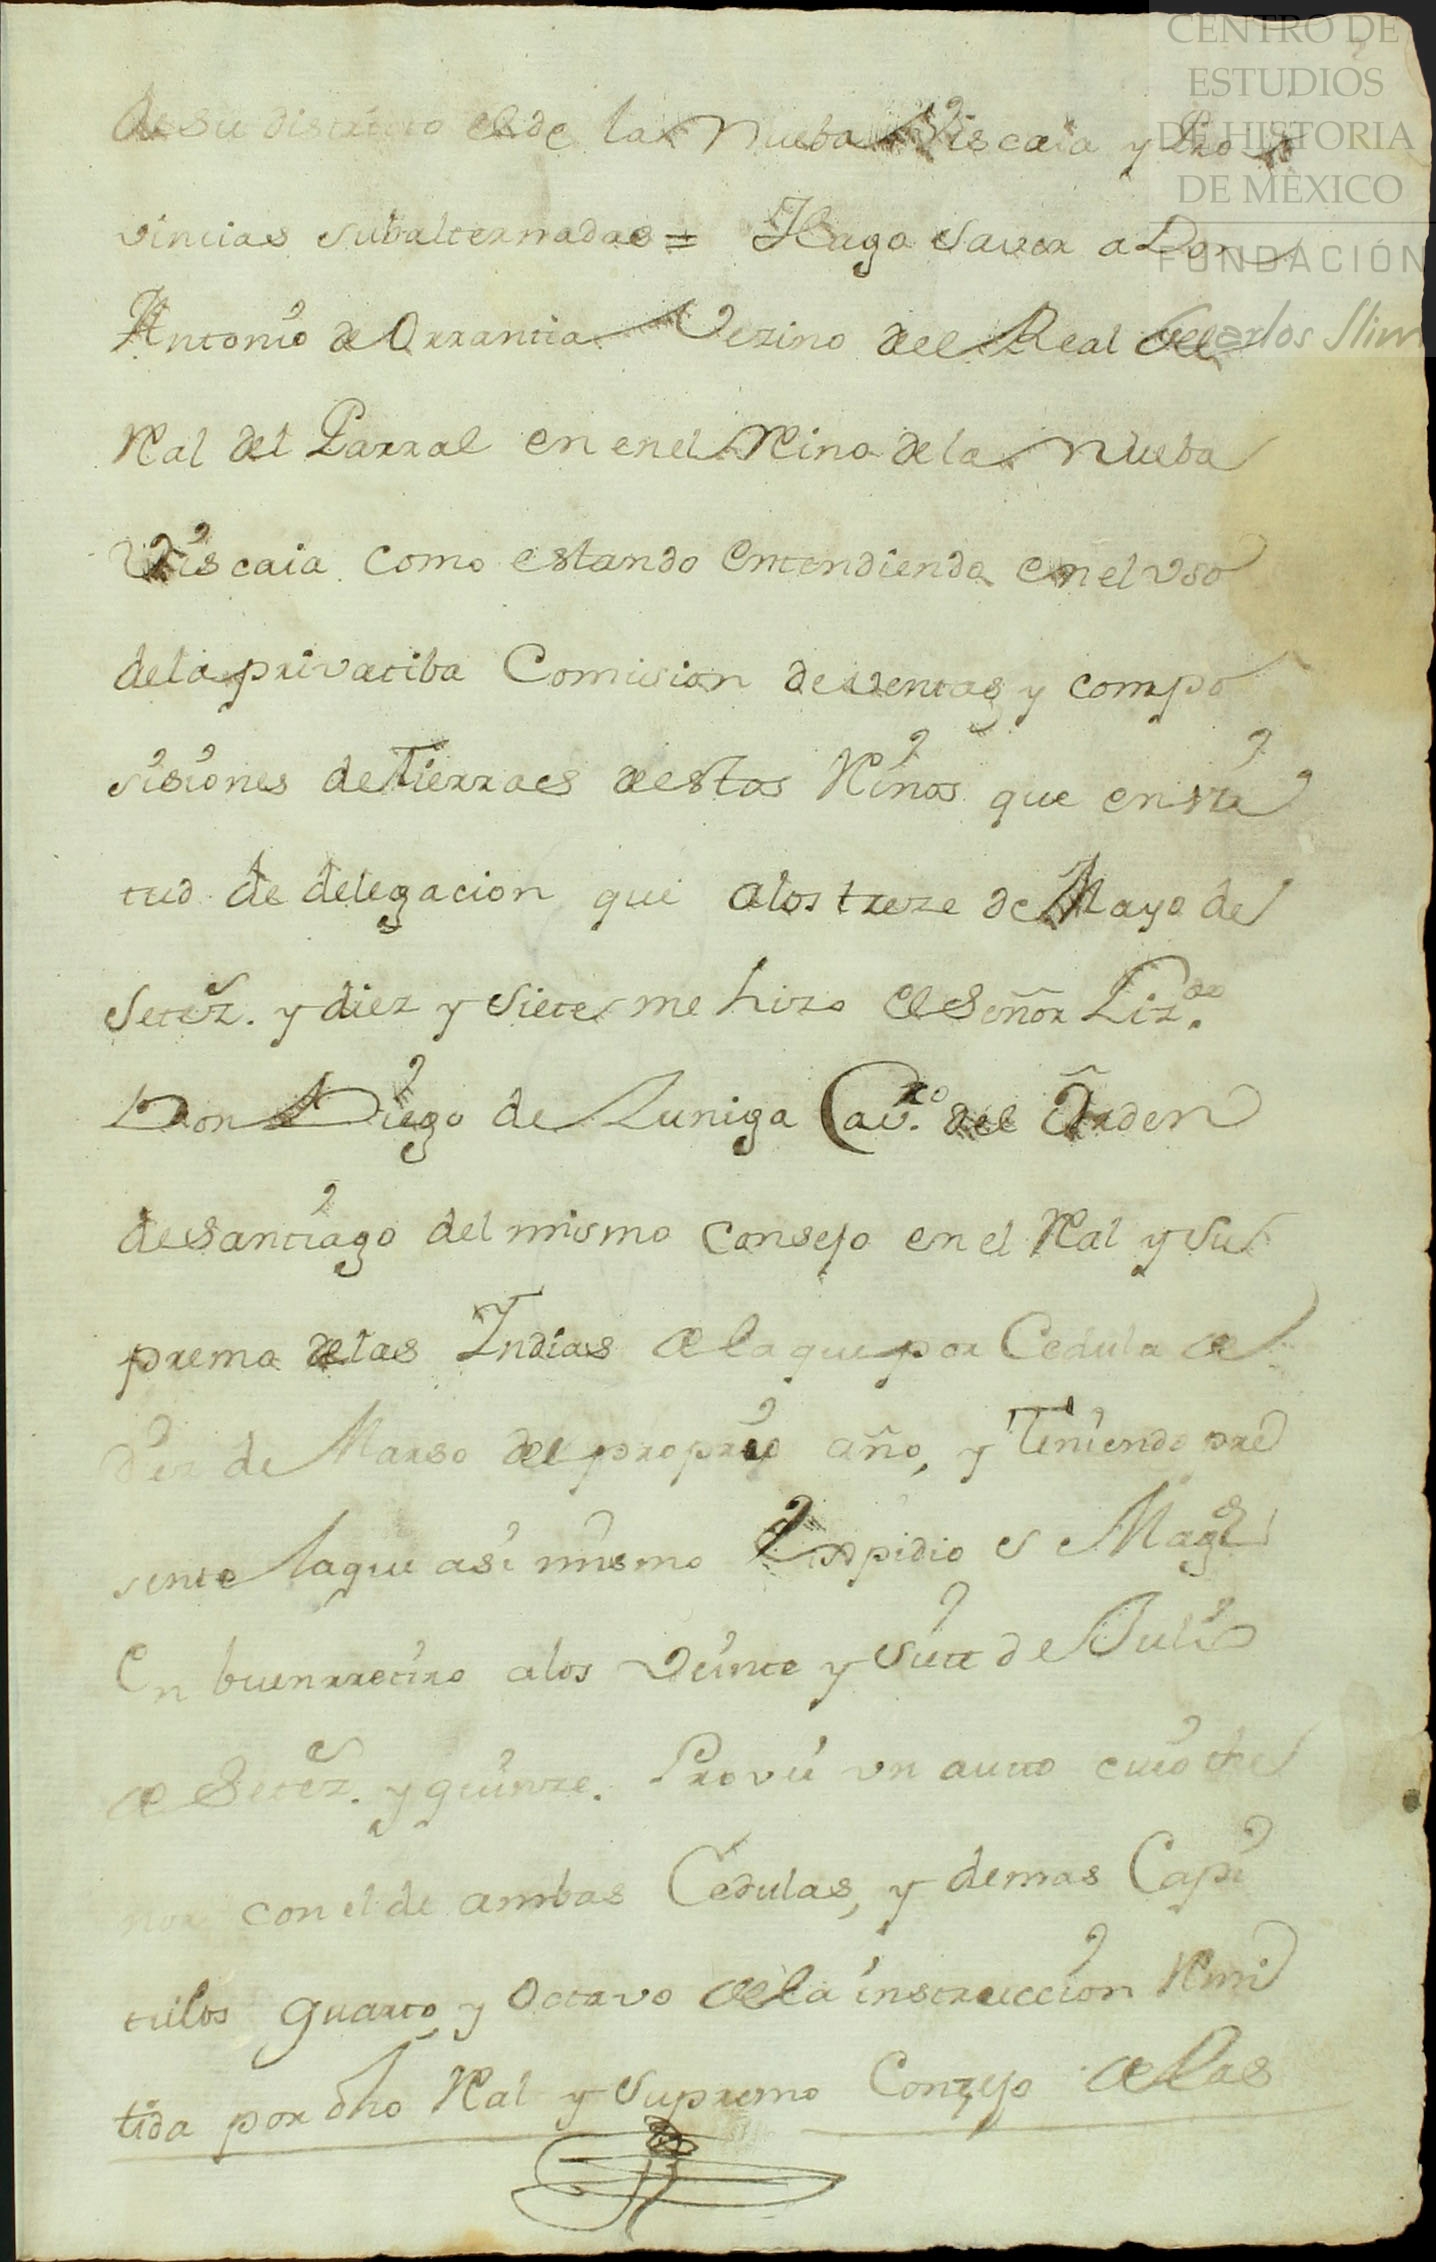 CENTRO DE
ESTUDIOS
DE HISTORIA
DE MÉXICO
FUNDACIÓN
Carlos Slim
de su districto el de la Nueba Viscaia y Pro
vincias subalternadas = Hago saver a Don
Antonio de Orrantia Vezino del Real del
Ral del Parral en en el Rino de la Nueba
Viscaia como estando entendiendo en el vso
de la privatiba Comision de ventas y compo
sisiones de Tierras destos Rinos que en vir
tud de delegacion que a los treze de Mayo de
Setez. y diez y siete me hizo el Señor Liz.do
Don Diego de Zuniga Cav.ro del Orden
de Santiago del mismo Consejo en el Ral y Su
premo de las Indias de la que por Cedula de
diez de Marso del proprio año, y Teniendo pre
sente la que asi mismo Expidio S Magd
En buenrretiro a los veinte y siete de Julio
de Setez. y quinze. Provei vn autto cuio the
nor con el de ambas Cedulas, y demas Capi
tulos quarto y Octavo de la instruccion Remi
tida por dho Ral y Supremo Conzejo de las